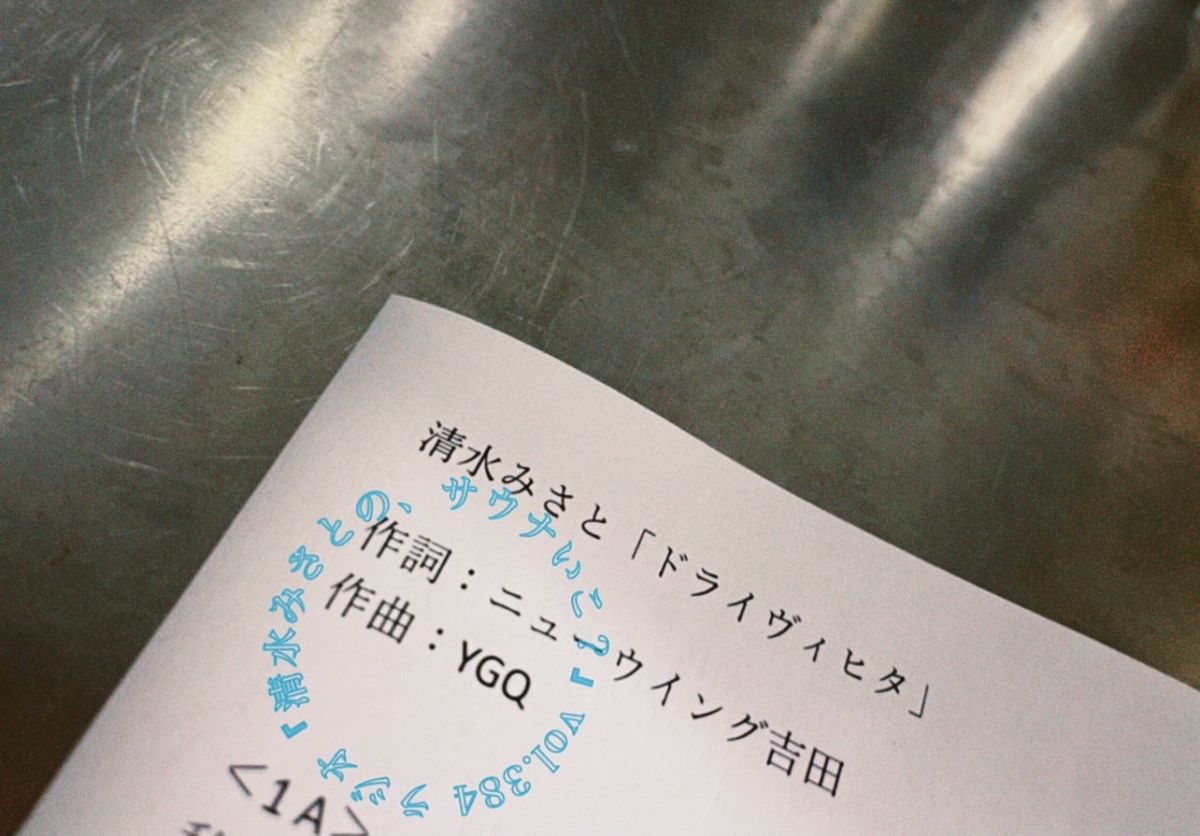 清水みさと「ドライヴィヒタ」
作詞：ニューウイング吉田
作曲：YGQ
<1A>
ラジオ『清水みさとの、サウナいこ?』vol.384